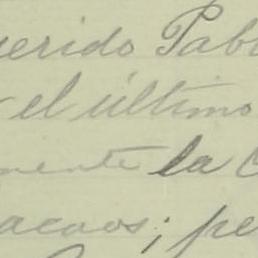 uerido Pabl
el último
mente la C
acaos; pe